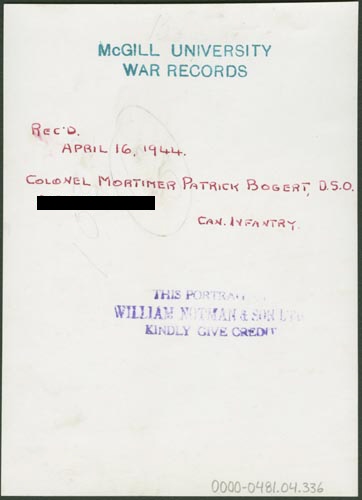 McGILL UNIVERSITY
WAR RECORDS
REC'D.
APRIL 16, 1944.
COLONEL MORTIMER PATRICK BOGERT, D.S.O.
CAN. INFANTRY.
THIS PORTRAIT
WILLIAM NOTMAN & SON LTD
KINDLY GIVE CREDIT
0000-0481.04.336